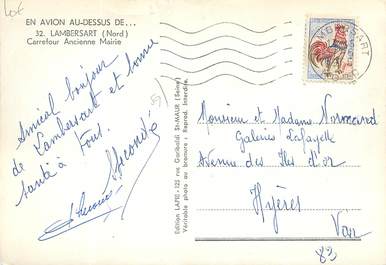 10€
EN AVION AU-DESSUS DE...
32. LAMBERSART (Nord)
Carrefour Ancienne Mairie
Amical bonjour
de Lambersart et bonne
santé à Tous.
Edition LAPIE - 125 rue Garibaldi St-MAUR (Seine)
Véritable photo au bromure : Reprod. Interdite.
LAMBERSART
Monsieur et Madame Normand
Galeries Lafayette
Avenue des Iles d'or
Hyères
Var
83